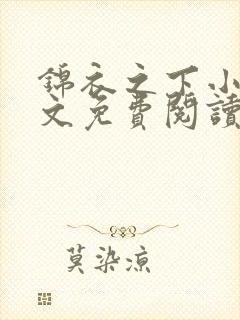 錦衣之下小
文免費閱讀
莫染涼